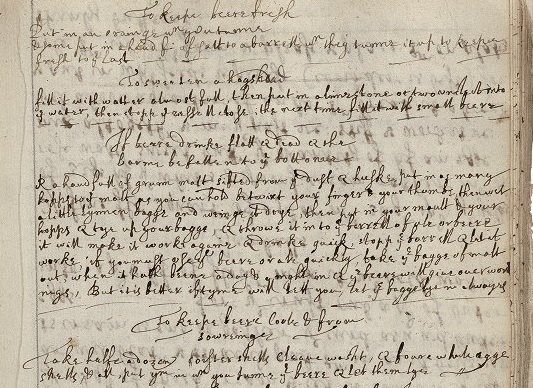 To Keepe beere fresh
Put in an orainge when you tunne
Some put in a hand of salt to a barrell when they tunne it up to keepe
fresh to the last
To sweeten a hogshead
fill it with watter almost full then put in a limestone or two unslakt into
ye water, then stopp ye vessell close; the next time fill it with small beere
If beere drinke flatt & dead & the
barme be fallen to ye bottome
R a handfull of grownd malt sifted from ye dust & huske, put in as many
hopps to ye malt as you can hold betwixt your finger & your thumbe, then wet
a little lynnen bagge and wringe it drye, then put in your mault & your
hopps & tye up your bagge, & throwe it into ye berrell of ale or beere
it will make it worke againe & drinke quick, stopp ye barrell & let it
worke if you must use ye beere or ale quickly take ye bagge of malt
out, when it hath beene a day & night in & ye beere will give over work
ing, But it is better if tyme will let you let ye bagge lye in alwayes
To Keepe beere Coole & from
sowreinge
Take halfe a dozen oyster shells cleane washt, & foure whole egge
shells, & put ym in wn you tunne ye beere & let them lye